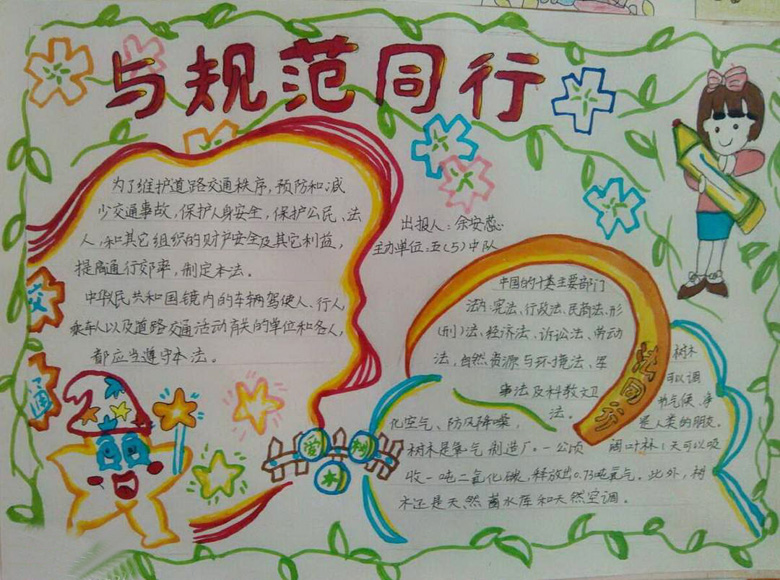 与规范同行
为了维护道路交通秩序，预防和减
少交通事故，保护人身安全，保护公民、法
人，和其它组织的财产安全及其它利益，
提高通行效率，制定本法。
中华民共和国镜内的车辆驾使人、行人，
乘车人以及道路交通活动有关的单位和各人，
都应当遵守本法。
交
通
出报人：余安蕊
主办单位：五(5)中队
中国的十类主要部门
法内：宪法、行政法、民商法、形
(刑)法、经济法、诉讼法、劳动
法、自然资源与环境法、军
事法及科教文卫
法。
法同行
爱树
木
树木
可以调
节气候、净
化空气、防风降噪，是人类的朋友。
树木是氧气制造厂。一公顷阔叶林1天可以吸
收一吨二氧化碳，释放出0.73吨氧气。此外，树
木还是天然蓄水库和天然空调。